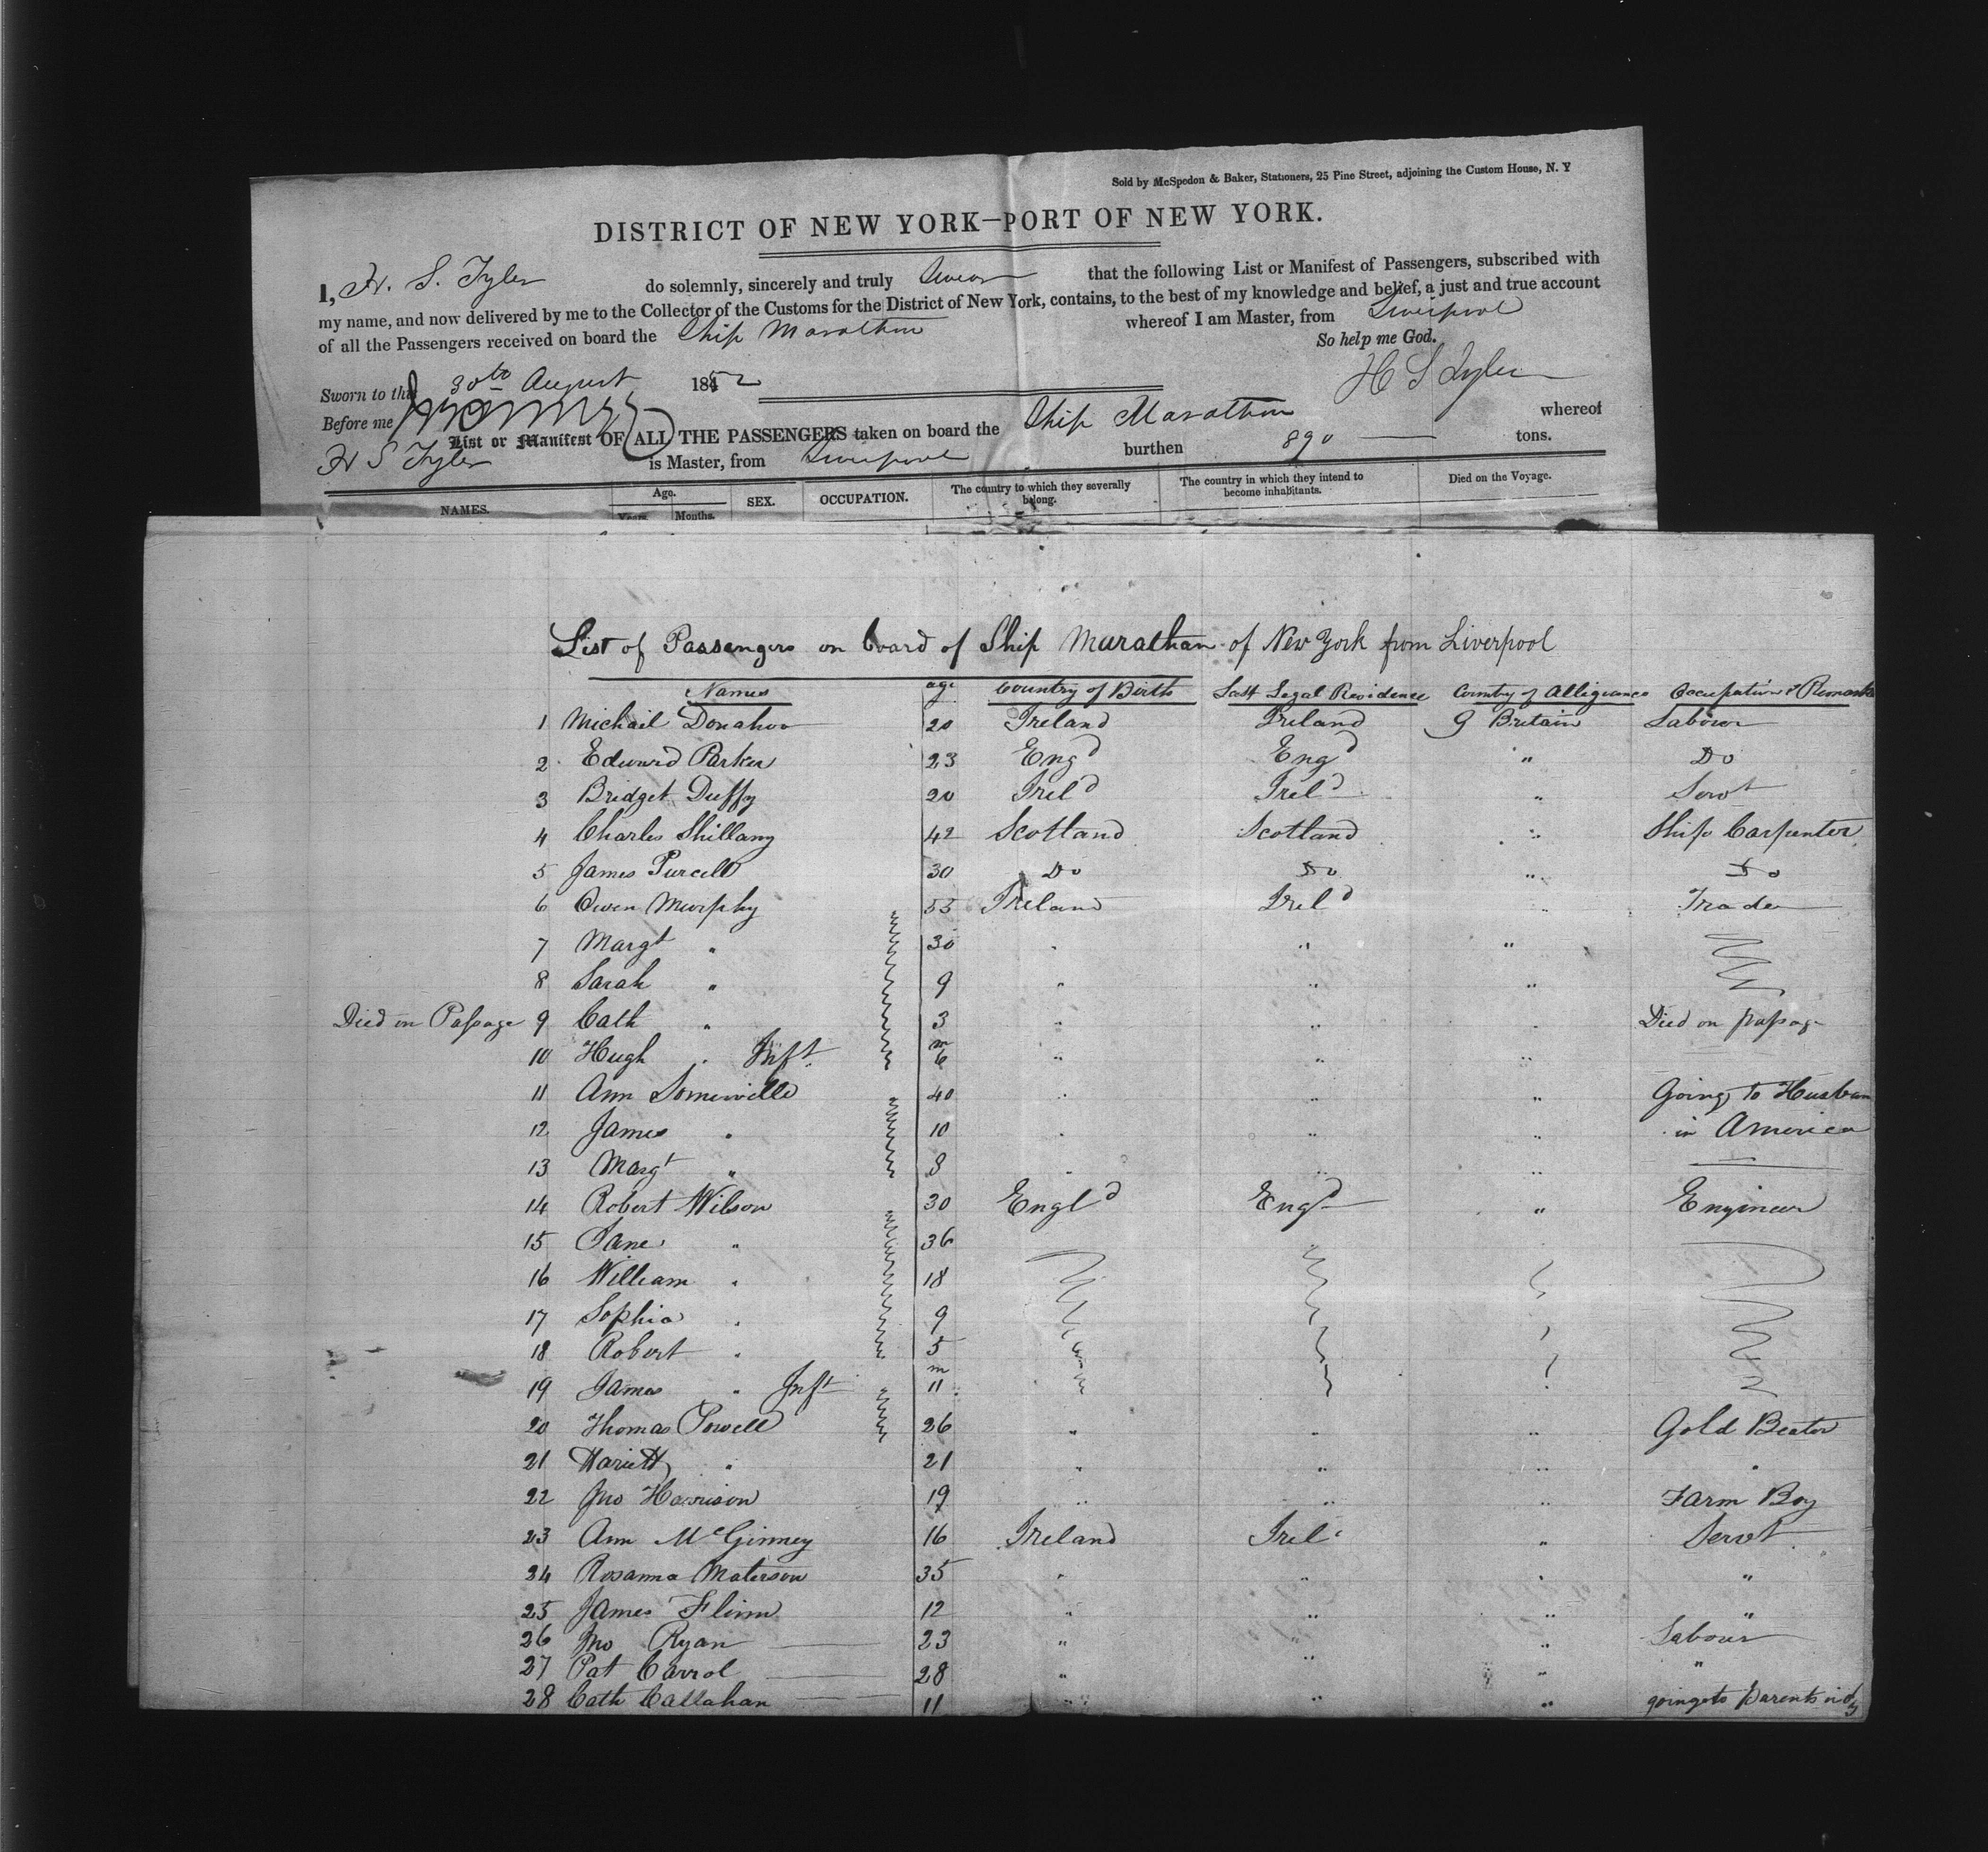 Sold by McSpedon & Baker, Stationers, 25 Pine Street, adjoining the Custom House, N. Y
DISTRICT OF NEW YORK—PORT OF NEW YORK.
I, H. S. Tyler do solemnly, sincerely and truly swear that the following List or Manifest of Passengers, subscribed with
my name, and now delivered by me to the Collector of the Customs for the District of New York, contains, to the best of my knowledge and belief, a just and true account
of all the Passengers received on board the Ship Marathon whereof I am Master, from Liverpool
So help me God.
Sworn to this 30th August 1852 H S Tyler
Before me
List or Manifest OF ALL THE PASSENGERS taken on board the Ship Marathon whereof
H S Tyler is Master, from Liverpool burthen 890 tons.
NAMES. Age. Years. Months. SEX. OCCUPATION. The country to which they severally belong. The country in which they intend to become inhabitants. Died on the Voyage.
List of Passengers on board of Ship Marathan of New York from Liverpool
Names age Country of Birth Last Legal Residence Country of Alligiance Occupation & Remarks
1 Michail Donahoo 20 Ireland Ireland G Britain Labour
2 Edward Parker 23 Engd Engd " Do
3 Bridget Duffy 20 Ireld Ireld " Servt
4 Charles Shillang 42 Scotland Scotland " Ship Carpenter
5 James Purcell 30 Do Do " Do
6 Owen Murphy 55 Ireland Ireld " Trader
7 Margt " 30 " " "
8 Sarah " 9 " " "
Died on Passage 9 Cath " 3 " " " Died on passage
10 Hugh " Inft m 6 " " "
11 Ann Somerville 40 " " " Going to Husban
12 James " 10 " " " in America
13 Margt " 8 " " "
14 Robert Wilson 30 Engld Engd " Engineer
15 Jane " 36
16 William " 18
17 Sophia " 9
18 Robert " 5
19 James " Inft m 11
20 Thomas Powell 26 " " " Gold Beater
21 Hariett " 21 " " " "
22 Jno Harrison 19 " " " Farm Boy
23 Ann McGinney 16 Ireland Ireld " Servt
24 Rosanna Materson 35 " " " "
25 James Flinn 12 " " " "
26 Jno Ryan 23 " " " Labour
27 Pat Carrol 28 " " " "
28 Cath Callahan 11 " " " going to parents in